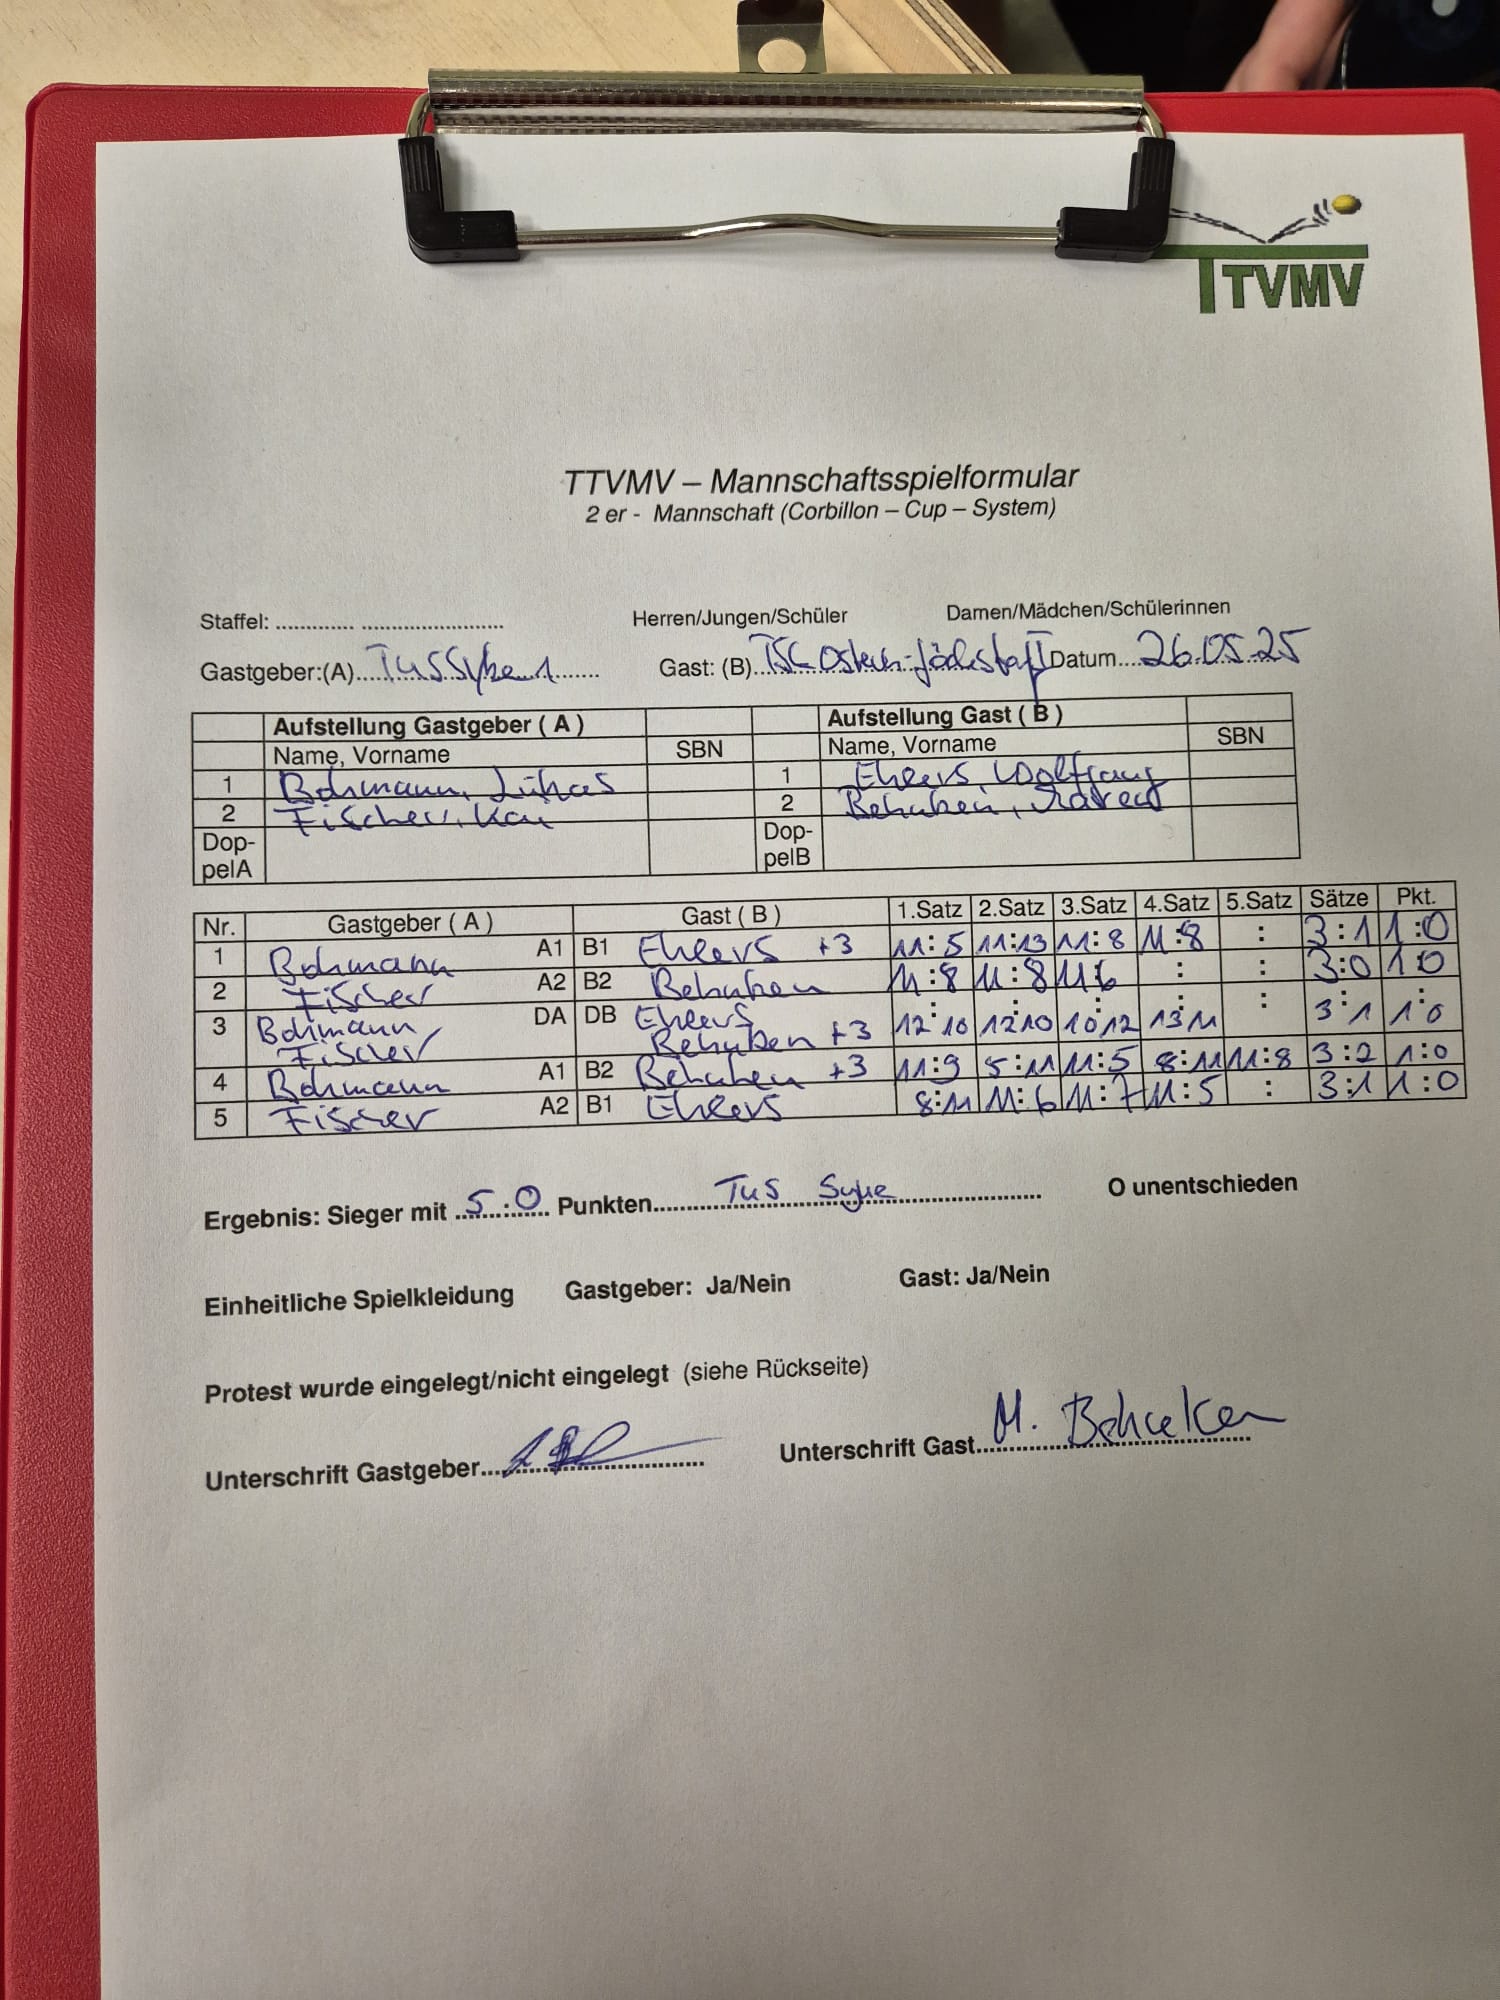 TTVMV
TTVMV – Mannschaftsspielformular
2 er - Mannschaft (Corbillon – Cup – System)
Staffel: ............. ........................ Herren/Jungen/Schüler Damen/Mädchen/Schülerinnen
Gastgeber:(A)....TuS Syke 1........ Gast: (B)..TSG II Datum....26.05.25
Aufstellung Gastgeber ( A ) Aufstellung Gast ( B )
Name, Vorname SBN Name, Vorname SBN
1 Bohmann, Lukas 1 Ehlers, Wolfgang
2 Fischer, Kai 2
Dop-pelA Dop-pelB
Nr. Gastgeber ( A ) Gast ( B ) 1.Satz 2.Satz 3.Satz 4.Satz 5.Satz Sätze Pkt.
1 Bohmann A1 B1 Ehlers +3 11:5 11:13 11:8 11:8 : 3:1 1:0
2 Fischer A2 B2 11:8 11:8 11:6 : : 3:0 1:0
3 Bohmann DA DB Ehlers 12:10 12:10 10:12 13:11 : 3:1 1:0
Fischer +3
4 Bohmann A1 B2 +3 11:9 5:11 11:5 8:11 11:8 3:2 1:0
5 Fischer A2 B1 Ehlers 8:11 11:6 11:7 11:5 : 3:1 1:0
Ergebnis: Sieger mit ..5..:.0.. Punkten..........TuS Syke.................... O unentschieden
Einheitliche Spielkleidung Gastgeber: Ja/Nein Gast: Ja/Nein
Protest wurde eingelegt/nicht eingelegt (siehe Rückseite)
Unterschrift Gastgeber.............................. Unterschrift Gast....M.